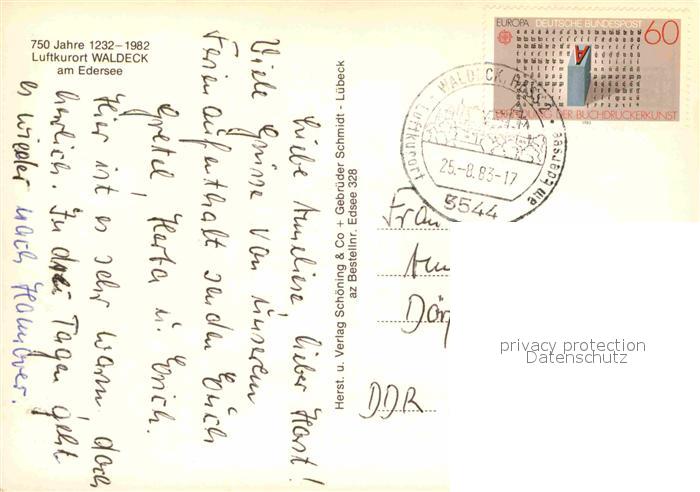 750 Jahre 1232–1982
Luftkurort WALDECK
am Edersee
Liebe Anneliese, lieber Horst!
Viele Grüsse von unserem
Ferienaufenthalt senden Euch
Gretel, Herta u. Erich.
Hier ist es sehr warm, doch
herrlich. In drei Tagen geht
es wieder nach Hannover.
Herst. u. Verlag Schöning & Co + Gebrüder Schmidt - Lübeck
az Bestellnr. Edsee 328
EUROPA DEUTSCHE BUNDESPOST 60
ERFINDUNG DER BUCHDRUCKERKUNST
WALDECK, HESS
Luftkurort
am Edersee
25.-8.83-17
3544
Frau
DDR
privacy protection
Datenschutz